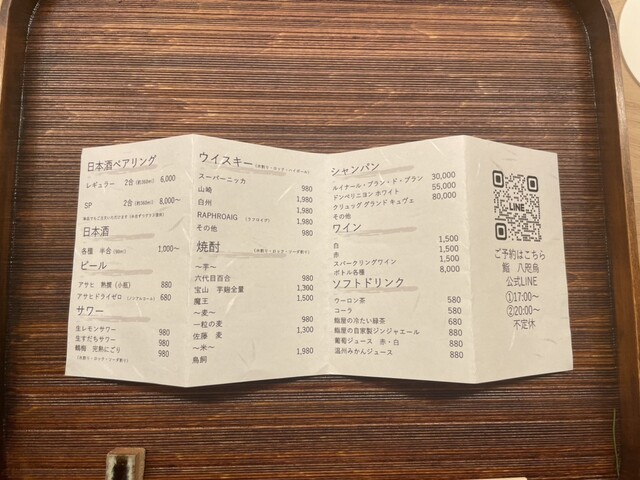 日本酒ペアリング
レギュラー 2合(約360ml) 6,000
SP 2合(約360ml) 8,000〜
日本酒
各種 半合(90ml) 1,000〜
ビール
アサヒ 熟撰(小瓶) 880
アサヒドライゼロ(ノンアルコール) 680
サワー
生レモンサワー 980
生すだちサワー 980
鶴梅 完熟にごり 980
(水割り・ロック・ソーダ割り)
ウイスキー(水割り・ロック・ハイボール)
スーパーニッカ 980
山崎 1,980
白州 1,980
RAPHROAIG (ラフロイグ) 1,980
その他 980
焼酎 (水割り・ロック・ソーダ割り)
〜芋〜
六代目百合 980
宝山 芋麹全量 1,360
魔王 1,500
〜麦〜
一粒の麦 980
佐藤 麦 1,300
〜米〜
鳥飼 1,980
シャンパン
ルイナール・ブラン・ド・ブラン 30,000
ドンペリニヨン ホワイト 55,000
クリュッグ グランド キュヴェ 80,000
その他
ワイン
白 1,500
赤 1,500
スパークリングワイン 1,500
ボトル各種 8,000
ソフトドリンク
ウーロン茶 580
コーラ 580
鮨屋の冷たい緑茶 680
鮨屋の自家製ジンジャエール 880
葡萄ジュース 赤・白 880
温州みかんジュース 880
LINE
ご予約はこちら
鮨 八咫烏
公式LINE
①17:00〜
②20:00〜
不定休